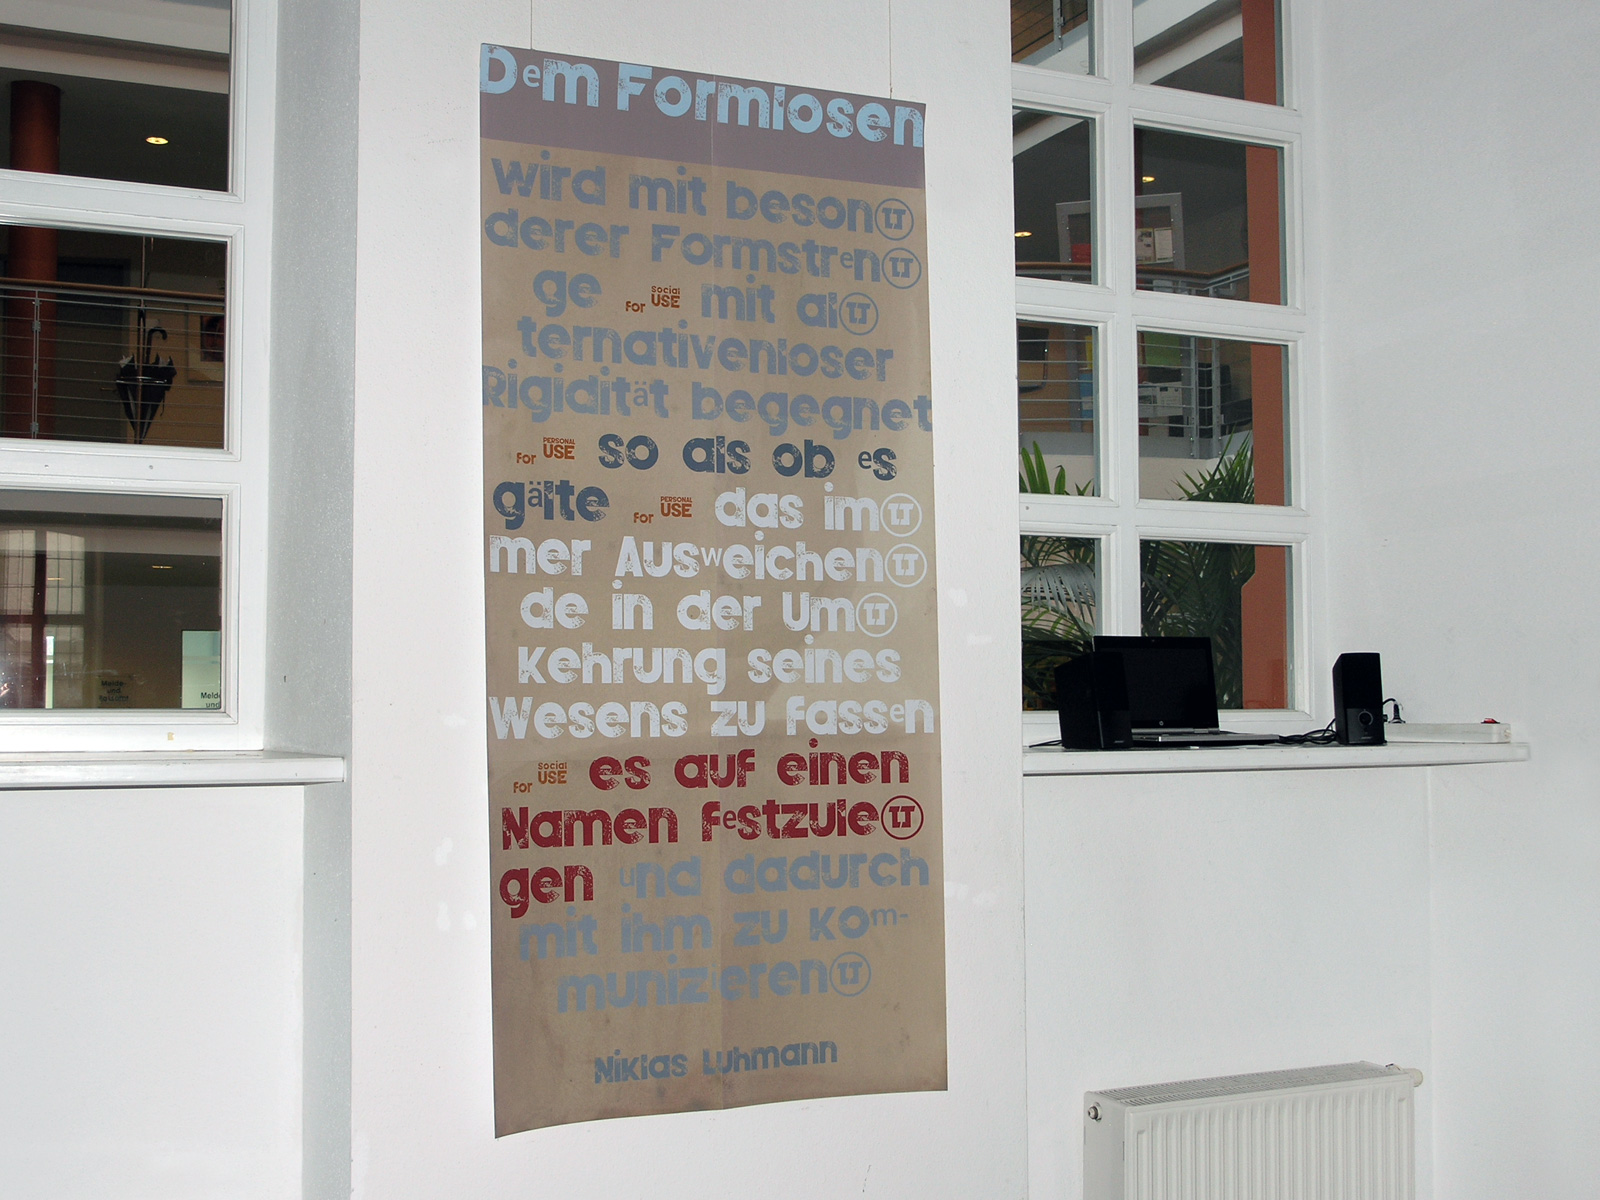 Dem Formlosen
wird mit beson
derer Formstren
ge for Social USE mit al
ternativenloser
Rigidität begegnet
for PERSONAL USE so als ob es
gälte for PERSONAL USE das im
mer Ausweichen
de in der Um
kehrung seines
Wesens zu fassen
for Social USE es auf einen
Namen festzule
gen und dadurch
mit ihm zu kom-
munizieren
Niklas Luhmann
Melde-
und
Melde
und